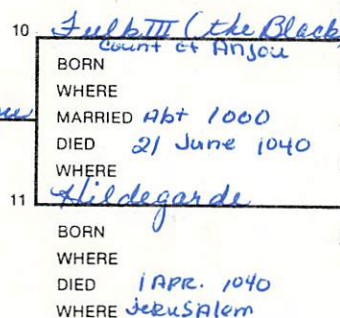 10 Fulk III (the Black
Count of Anjou
BORN
WHERE
MARRIED Abt 1000
DIED 21 June 1040
WHERE
11 Hildegarde
BORN
WHERE
DIED 1 APR. 1040
WHERE Jerusalem